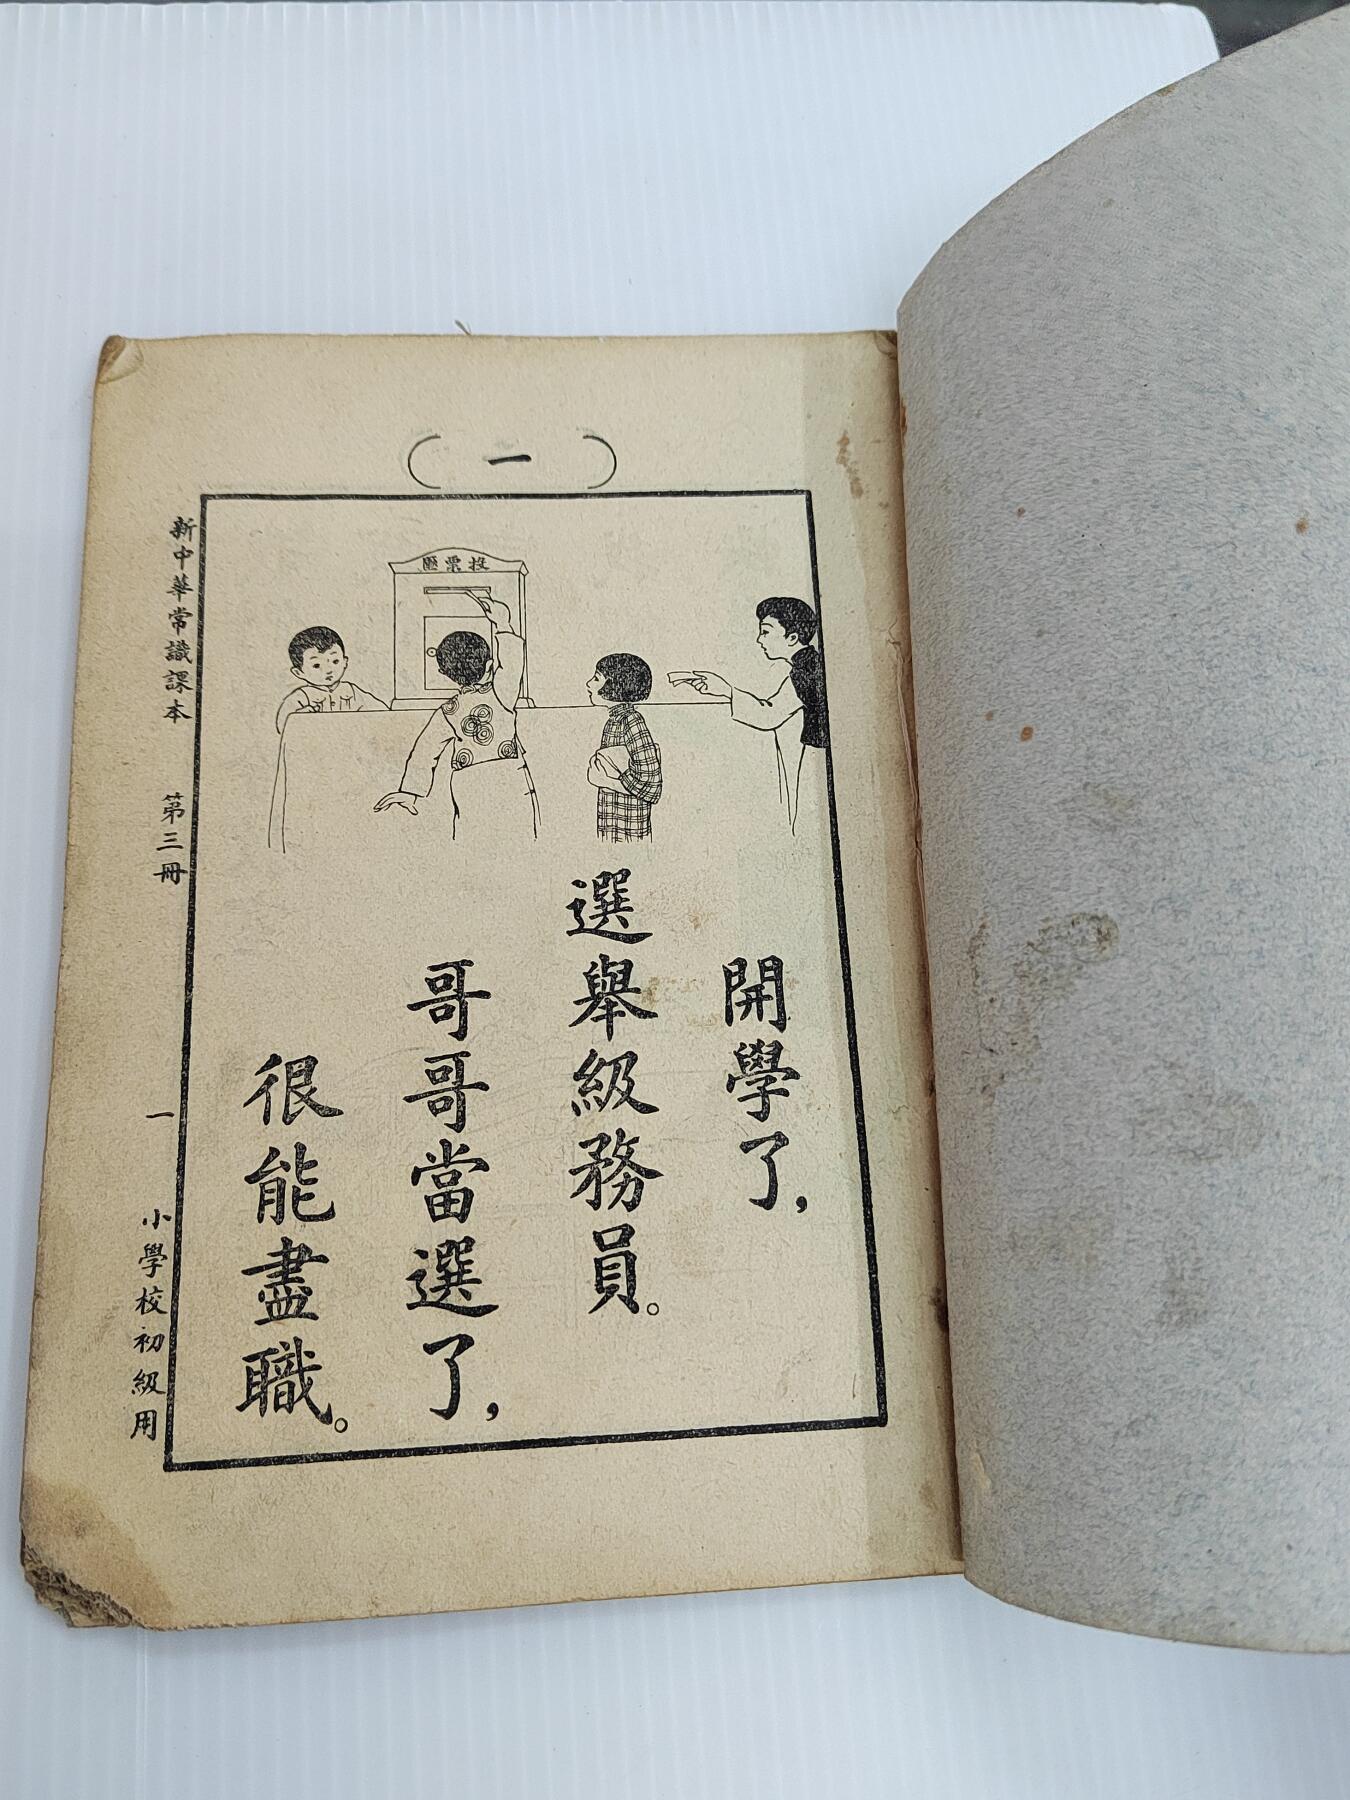 （一）
投票匭
開學了，
選舉級務員。
哥哥當選了，
很能盡職。
新中華常識課本 第三冊 一 小學校初級用